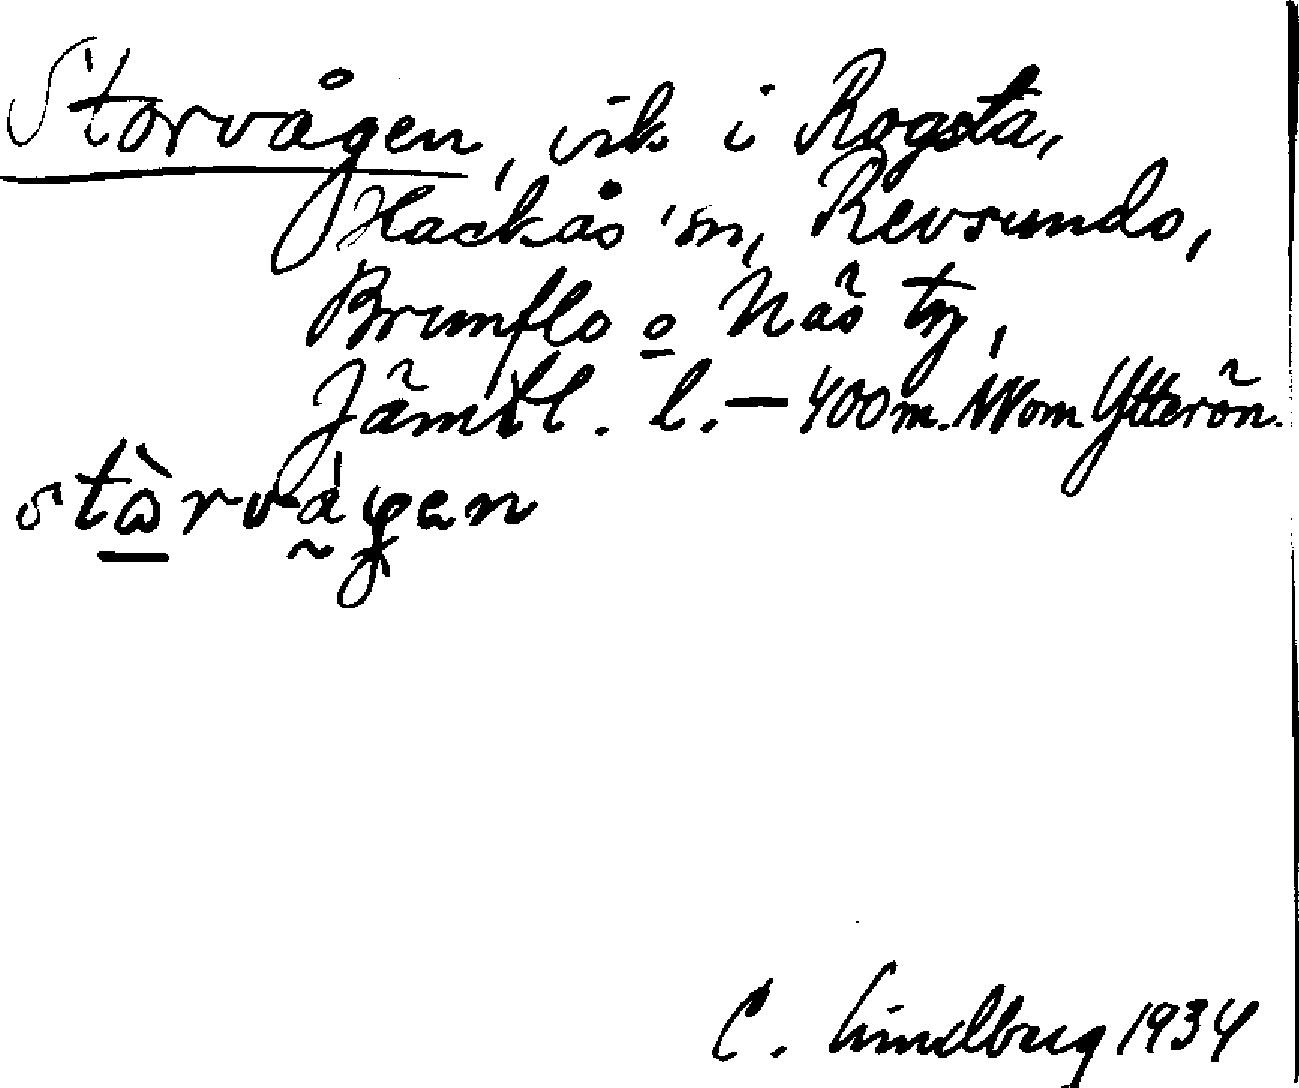 Storvågen, vik i Rogsta,
Hackås sn, Revsunds,
Brunflo o Näs tg,
Jämtl. l. — 400 m. NV om Ytterön.
C. Lindberg 1934